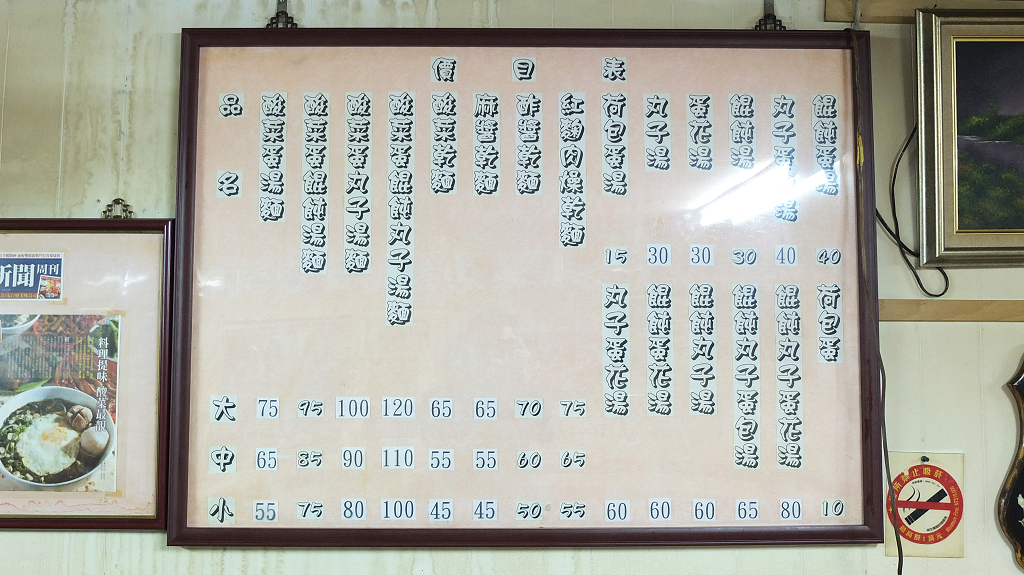 價目表
品名 大 中 小
酸菜蛋湯麵 75 65 55
酸菜蛋餛飩湯麵 95 85 75
酸菜蛋丸子湯麵 100 90 80
酸菜蛋餛飩丸子湯麵 120 110 100
酸菜乾麵 65 55 45
麻醬乾麵 65 55 45
酢醬乾麵 70 60 50
紅麴肉燥乾麵 75 65 55
荷包蛋湯 15
丸子湯 30
蛋花湯 30
餛飩湯 30
丸子蛋湯 40
餛飩蛋湯 40
丸子蛋花湯 60
餛飩蛋花湯 60
餛飩丸子湯 60
餛飩丸子蛋包湯 65
餛飩丸子蛋花湯 80
荷包蛋 10
新聞周刊
料理提味